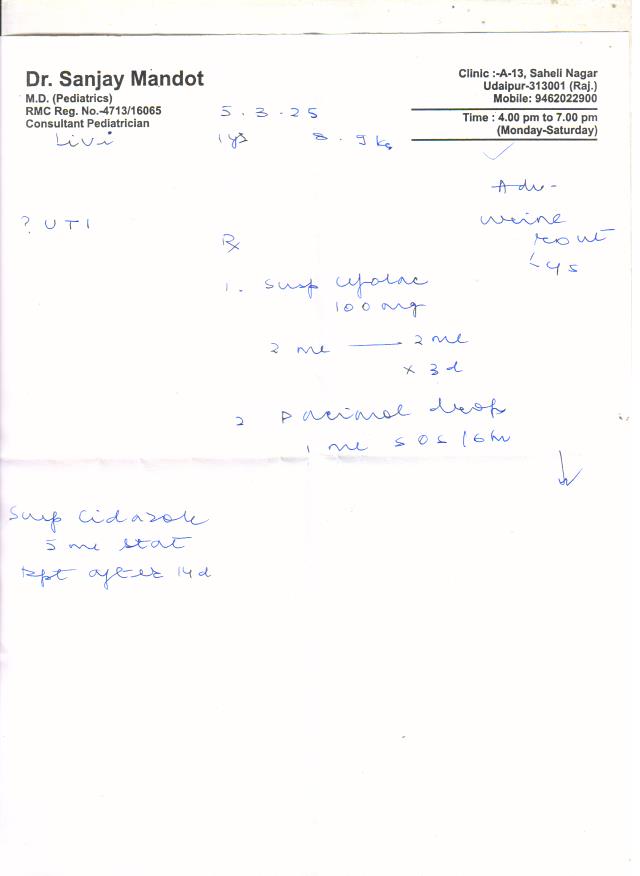 Dr. Sanjay Mandot
M.D. (Pediatrics)
RMC Reg. No.-4713/16065
Consultant Pediatrician
Clinic :-A-13, Saheli Nagar
Udaipur-313001 (Raj.)
Mobile: 9462022900
Time : 4.00 pm to 7.00 pm
(Monday-Saturday)
5.3.25
Livi 8.9 kg
Adv-
urine
rout
? UTI
Rx
1. Susp
100 mg
2 ml — 2 ml
x 3d
2 Pacimol drop
1 ml SOS / 6hr
Susp Cidazole
5 ml stat
Rpt after 14d